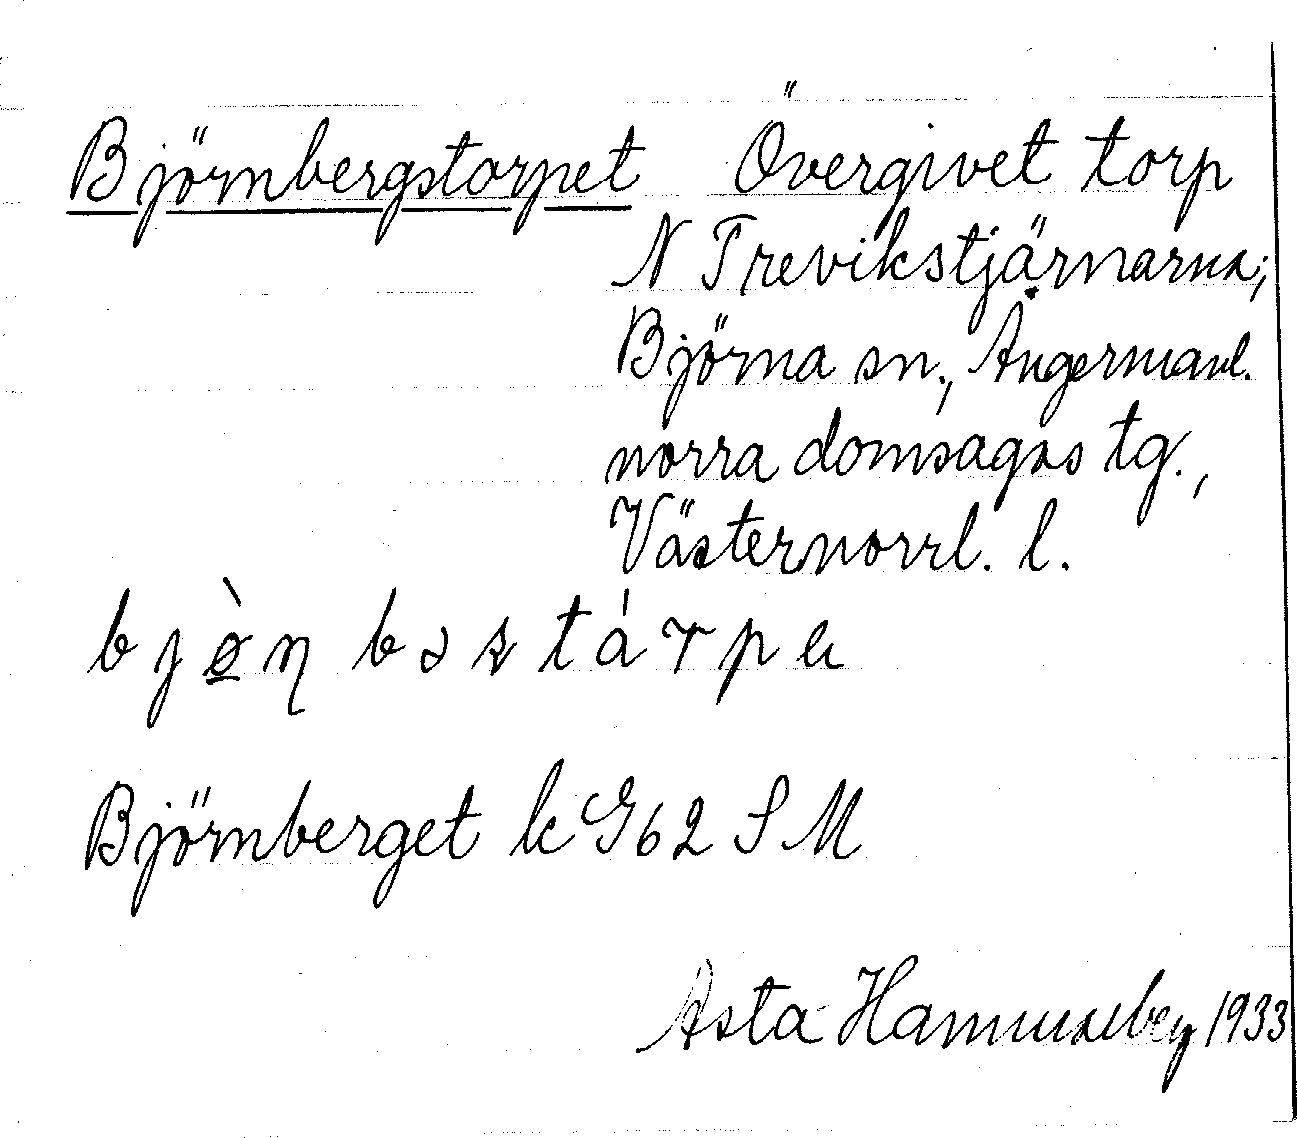 Björnbergstorpet Övergivet torp
N Trevikstjärnarna;
Björna sn., Ångermanl.
norra domsagas tg.,
Västernorrl. l.
Björnberget k G62 SM
Asta Hammarberg 1933